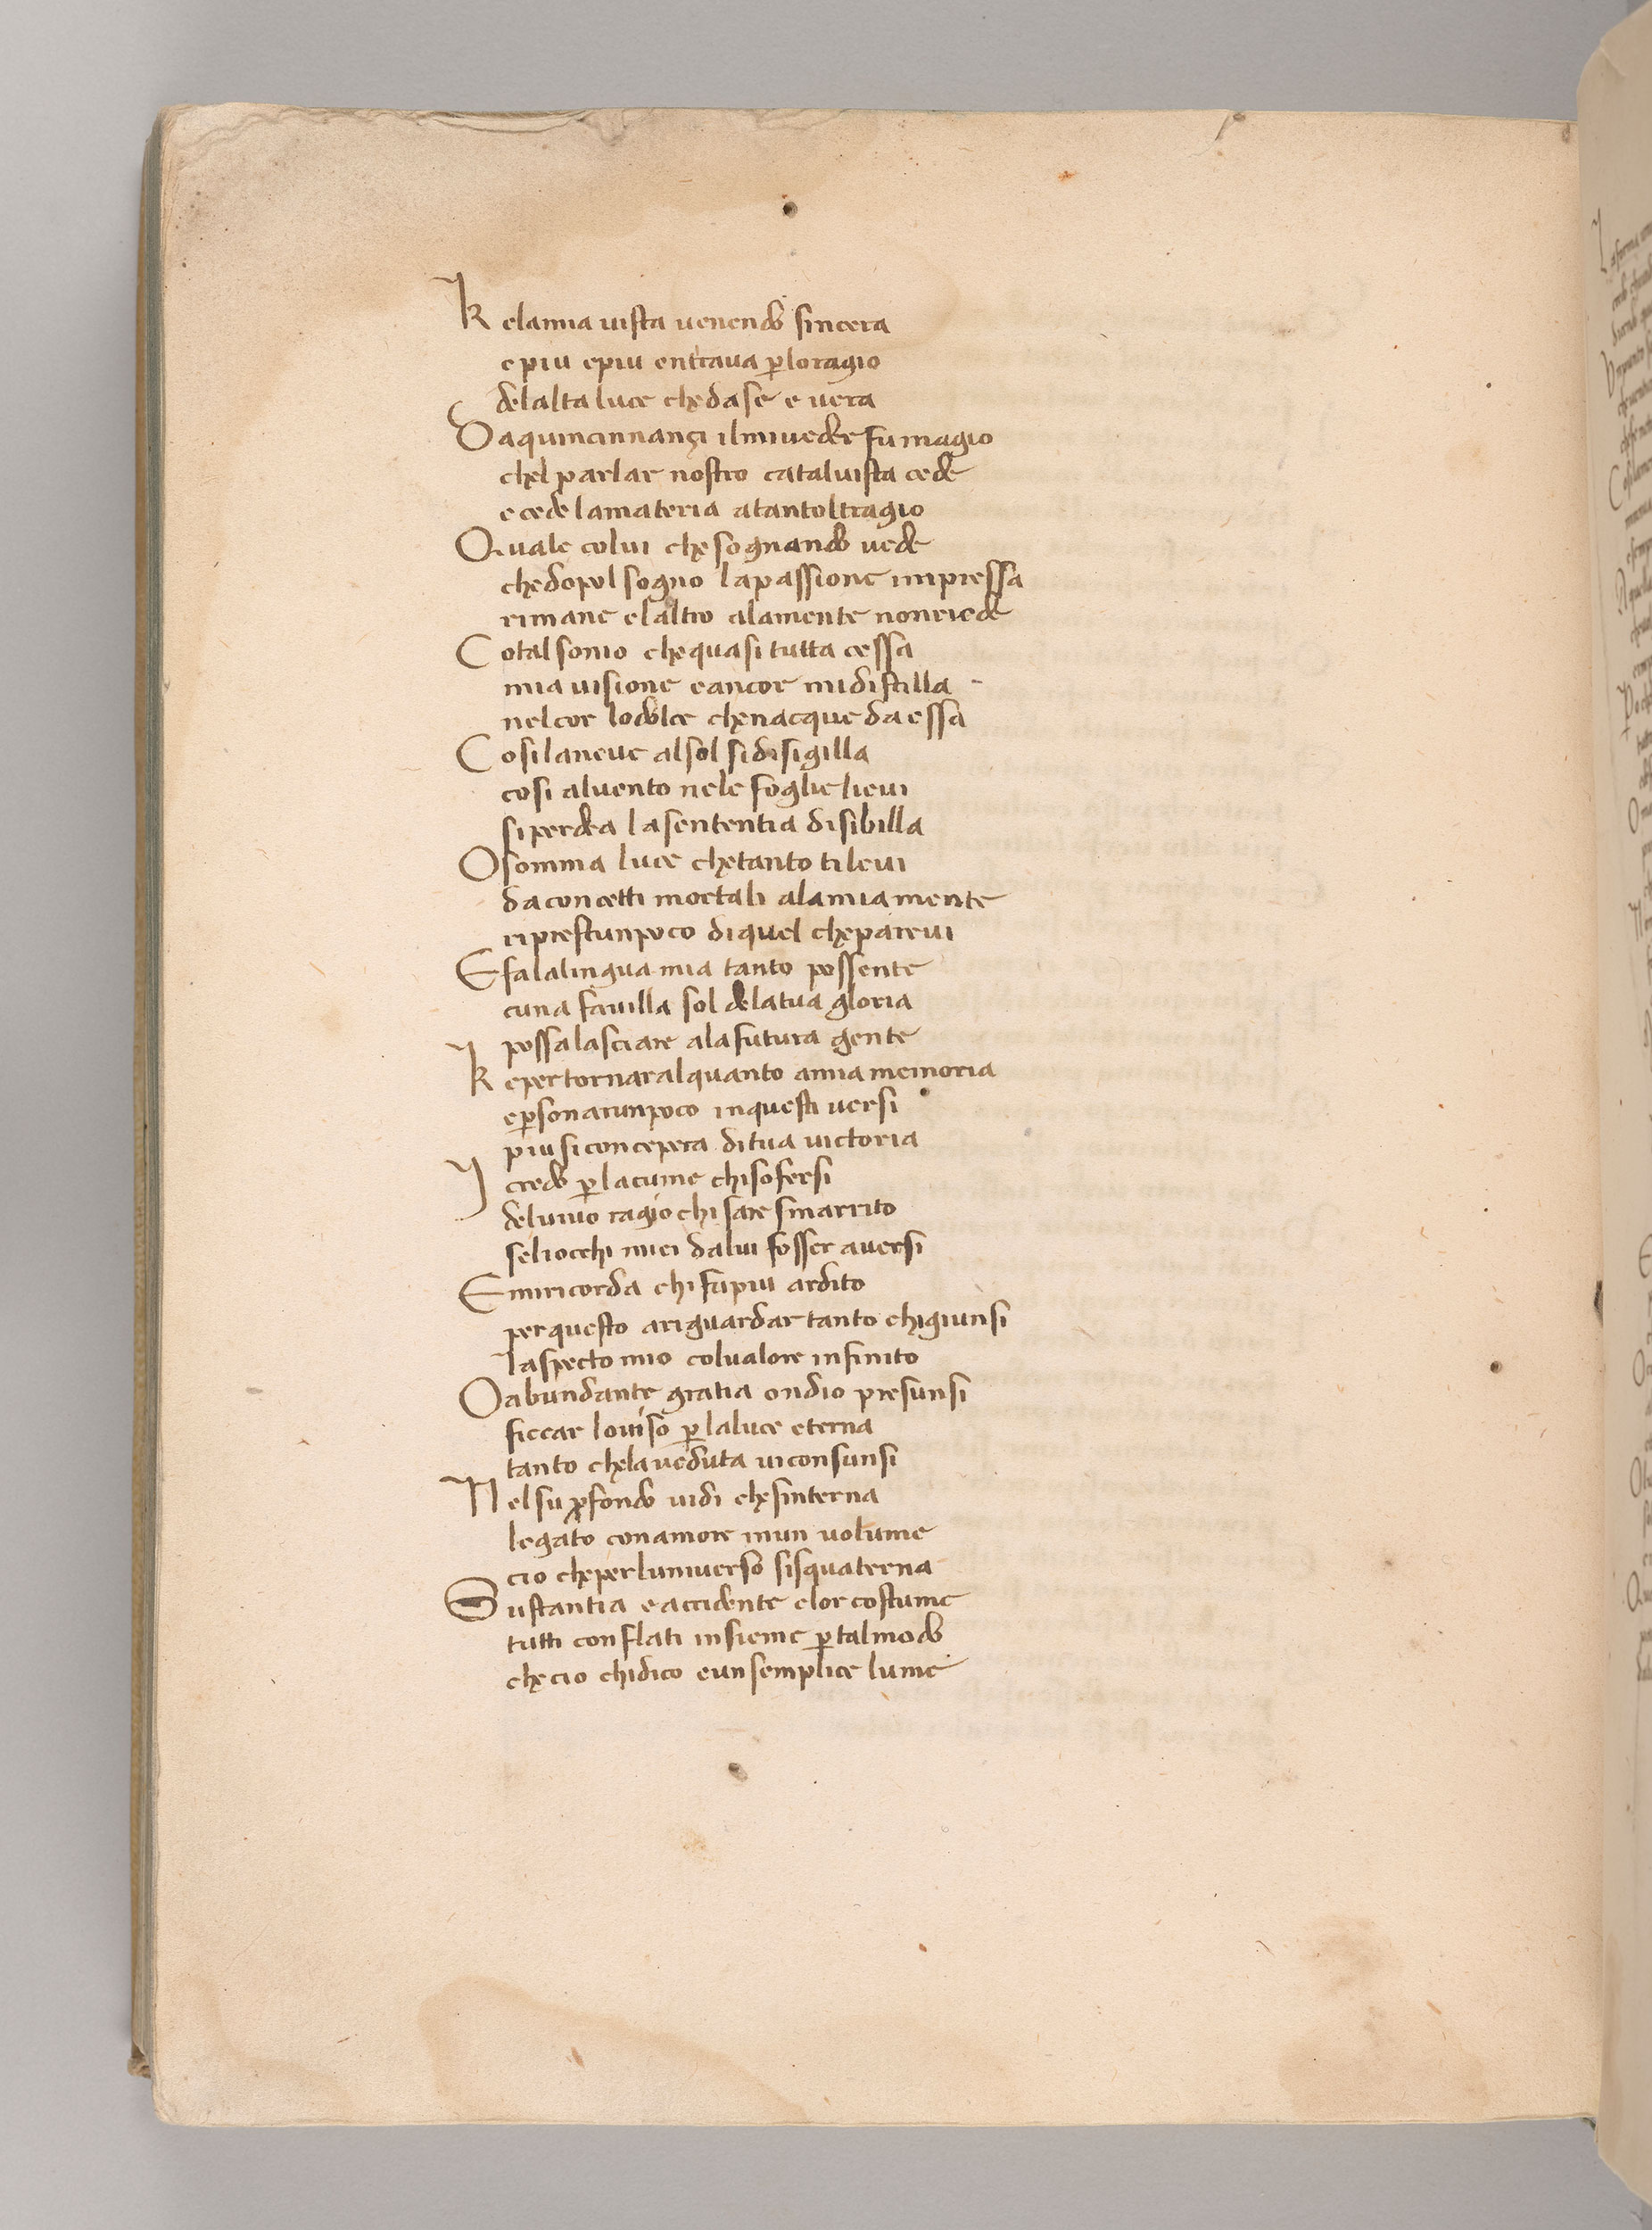 K elamia uista uenendo sincera
epiu epiu entraua ꝑloragio
delalta luce chedase e uera
Daquincinnançi ilmiuedere fu magio
chel parlar nostro cataluista cede
ecede lamateria atantoltragio
Quale colui che sognando uede
chedopol sogno lapassione impressa
rimane elaltro alamente nonriede
Cotal sonio chequasi tutta cessa
mia uisione eancor midistilla
nelcor lodolce chenacque da essa
Cosi laneue alsol sidisigilla
cosi aluento nele foglie lieui
siperdea la sententia di sibilla
O somma luce chetanto tileui
daconcetti mortali alamiamente
riprestunpoco diquel chepareui
E fa lalingua mia tanto possente
cuna fauilla sol delatua gloria
possa lasciare alafutura gente
K epertornaralquanto amia memoria
eꝑsonarunpoco inquesti uersi
piu siconcepera ditua uictoria
I credo ꝑlacume chisofersi
deluiuo ragio chi sare smarrito
seliocchi miei dalui fosser auersi
E miricorda chifupiu ardito
perquesto ariguardar tanto chigiunsi
laspecto mio colualore infinito
O abundante gratia ondio presunsi
ficcar louiso ꝑlaluce eterna
tanto chelaueduta uiconsunsi
N elsu ꝓfondo uidi chesinterna
legato conamore inun uolume
cio cheperluniuerso sisquaterna
Sustantia eaccidente elor costume
tutti conflati insieme ꝑtalmodo
checio chidico eunsemplice lume